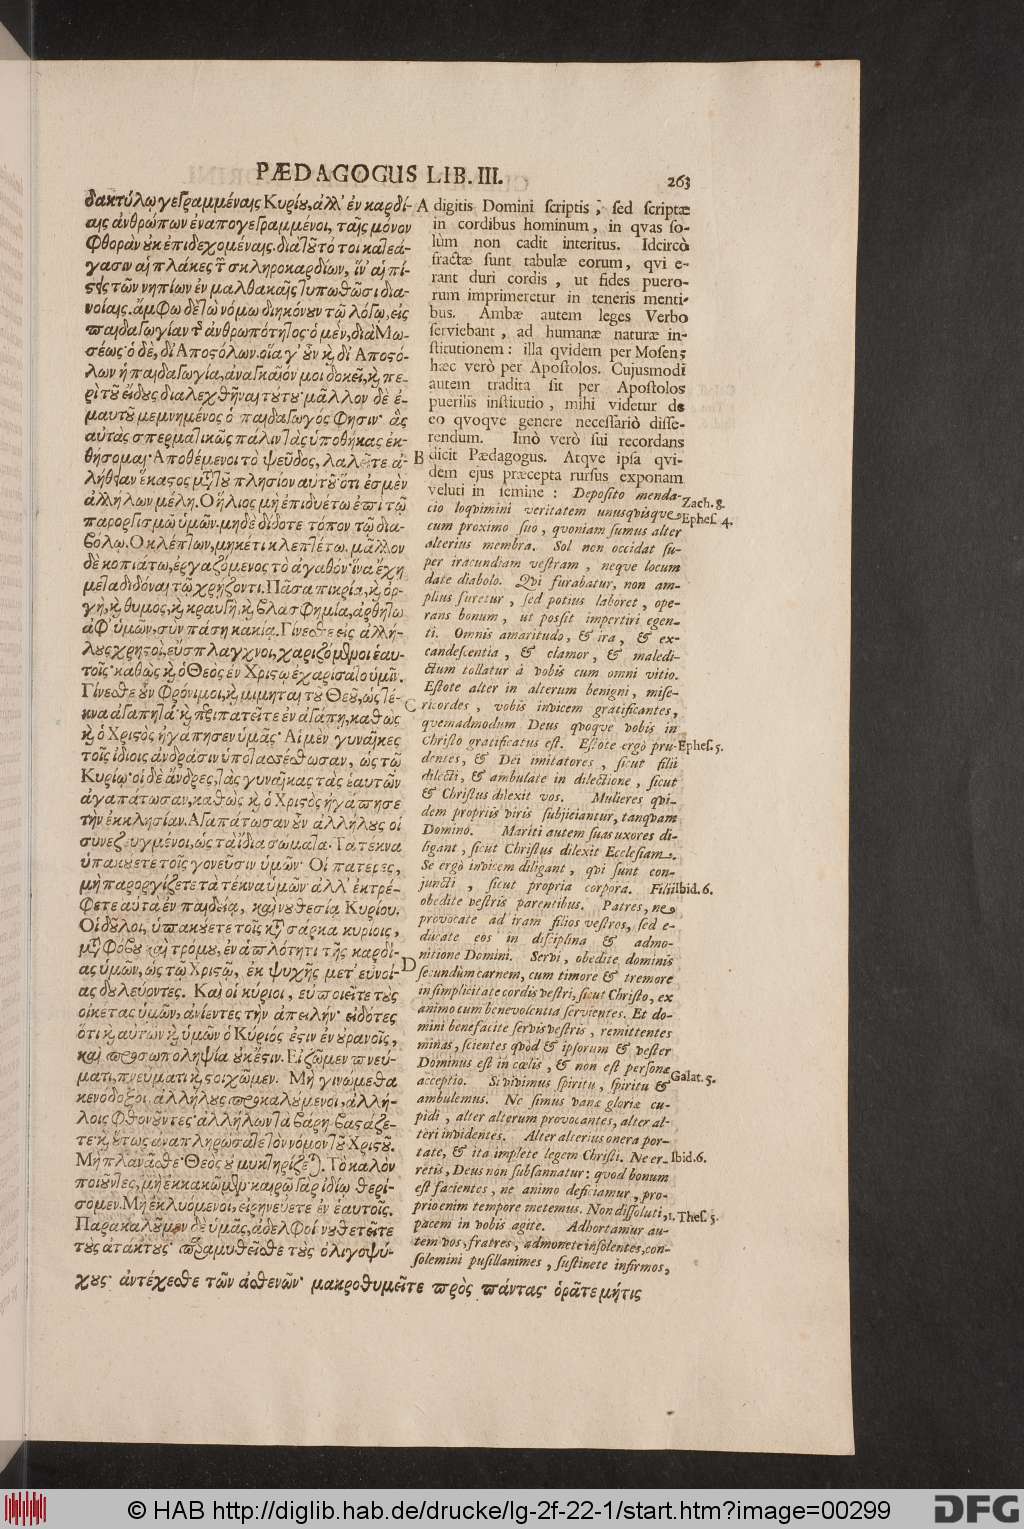 PÆDAGOGUS LIB. III.
263
δακτύλῳ γεγραμμέναις Κυρίου, ἀλλ' ἐν καρδί-
αις ἀνθρώπων ἐναπογεγραμμένοι, ταῖς μόνον
φθορὰν οὐκ ἐπιδεχομέναις. διὰ τοῦτό τοι κατεά-
γασιν αἱ πλάκες τῶν σκληροκαρδίων, ἵν' αἱ πί-
στεις τῶν νηπίων ἐν μαλθακαῖς τυπωθῶσι δια-
νοίαις. ἄμφω δὲ τὼ νόμω διηκόνουν τῷ λόγῳ, εἰς
παιδαγωγίαν τῆς ἀνθρωπότητος· ὁ μὲν, διὰ Μω-
σέως· ὁ δὲ, δι' Ἀποστόλων. οἵα γ' οὖν καὶ δι' Ἀποστό-
λων ἡ παιδαγωγία, ἀναγκαῖόν μοι δοκεῖ, καὶ πε-
ρὶ τοῦ εἴδους διαλεχθῆναι τούτου· μᾶλλον δὲ ἐ-
μαυτοῦ μεμνημένος ὁ παιδαγωγός φησιν· ἃς
αὐτὰς σπερματικῶς πάλιν τὰς ὑποθήκας ἐκ-
θήσομαι· Ἀποθέμενοι τὸ ψεῦδος, λαλεῖτε ἀ-
λήθειαν ἕκαστος μετὰ τοῦ πλησίον αὐτοῦ· ὅτι ἐσμὲν
ἀλλήλων μέλη. Ὁ ἥλιος μὴ ἐπιδυέτω ἐπὶ τῷ
παροργισμῷ ὑμῶν. μηδὲ δίδοτε τόπον τῷ δια-
βόλῳ. Ὁ κλέπτων, μηκέτι κλεπτέτω, μᾶλλον
δὲ κοπιάτω, ἐργαζόμενος τὸ ἀγαθόν· ἵνα ἔχῃ
μεταδιδόναι τῷ χρῄζοντι. Πᾶσα πικρία, καὶ ὀρ-
γὴ, καὶ θυμος, καὶ κραυγὴ, καὶ βλασφημία, ἀρθήτω
ἀφ' ὑμῶν, σὺν πάσῃ κακίᾳ. Γίνεσθε εἰς ἀλλή-
λους χρηστοὶ, εὔσπλαγχνοι, χαριζόμενοι ἑαυ-
τοῖς· καθὼς καὶ ὁ Θεὸς ἐν Χριστῷ ἐχαρίσατο ὑμῖν.
Γίνεσθε οὖν φρόνιμοι, καὶ μιμηταὶ τοῦ Θεοῦ, ὡς τέ-
κνα ἀγαπητά· καὶ περιπατεῖτε ἐν ἀγάπῃ, καθὼς
καὶ ὁ Χριστὸς ἠγάπησεν ὑμᾶς· Αἱ μὲν γυναῖκες
τοῖς ἰδίοις ἀνδράσιν ὑποτασσέσθωσαν, ὡς τῷ
Κυρίῳ· οἱ δὲ ἄνδρες, τὰς γυναῖκας τὰς ἑαυτῶν
ἀγαπάτωσαν, καθὼς καὶ ὁ Χριστὸς ἠγάπησε
τὴν ἐκκλησίαν. Ἀγαπάτωσαν οὖν ἀλλήλους οἱ
συνεζευγμένοι, ὡς τὰ ἴδια σώματα. Τὰ τέκνα
ὑπακούετε τοῖς γονεῦσιν ὑμῶν· Οἱ πατέρες,
μὴ παροργίζετε τὰ τέκνα ὑμῶν· ἀλλ' ἐκτρέ-
φετε αὐτὰ ἐν παιδείᾳ, καὶ νουθεσίᾳ Κυρίου.
Οἱ δοῦλοι, ὑπακούετε τοῖς κατὰ σάρκα κυρίοις,
μετὰ φόβου καὶ τρόμου, ἐν ἁπλότητι τῆς καρδί-
ας ὑμῶν, ὡς τῷ Χριστῷ, ἐκ ψυχῆς μετ' εὐνοί-
ας δουλεύοντες. Καὶ οἱ κύριοι, εὖ ποιεῖτε τοὺς
οἰκέτας ὑμῶν, ἀνιέντες τὴν ἀπειλήν· εἰδότες
ὅτι καὶ αὐτῶν καὶ ὑμῶν ὁ Κύριός ἐστιν ἐν οὐρανοῖς,
καὶ προσωποληψία οὐκ ἔστιν. Εἰ ζῶμεν πνεύ-
ματι, πνεύματι καὶ στοιχῶμεν. Μὴ γινώμεθα
κενόδοξοι, ἀλλήλους προκαλούμενοι, ἀλλή-
λοις φθονοῦντες· ἀλλήλων τὰ βάρη βαστάζε-
τε· καὶ οὕτως ἀναπληρώσατε τὸν νόμον τοῦ Χριστοῦ.
Μὴ πλανᾶσθε· Θεὸς οὐ μυκτηρίζεται. Τὸ καλὸν
ποιοῦντες, μὴ ἐκκακῶμεν· καιρῷ γὰρ ἰδίῳ θερί-
σομεν. Μὴ ἐκλυόμενοι, εἰρηνεύετε ἐν ἑαυτοῖς.
Παρακαλοῦμεν δὲ ὑμᾶς, ἀδελφοί νουθετεῖτε
τοὺς ἀτάκτους· παραμυθεῖσθε τοὺς ὀλιγοψύ-
χους· ἀντέχεσθε τῶν ἀσθενῶν· μακροθυμεῖτε πρὸς πάντας· ὁρᾶτε μήτις
A digitis Domini scriptis; sed scriptæ
in cordibus hominum, in qvas so-
lùm non cadit interitus. Idcircò
fractæ sunt tabulæ eorum, qvi e-
rant duri cordis, ut fides puero-
rum imprimeretur in teneris menti-
bus. Ambæ autem leges Verbo
serviebant, ad humanæ naturæ in-
stitutionem: illa qvidem per Mosen;
hæc verò per Apostolos. Cujusmodi
autem tradita sit per Apostolos
puerilis institutio, mihi videtur de
eo qvoqve genere necessariò disse-
rendum. Imò verò sui recordans
B dicit Pædagogus. Atqve ipsa qvi-
dem ejus præcepta rursus exponam
veluti in semine: Deposito menda-
cio loqvimini veritatem unusqvisqve
cum proximo suo, qvoniam sumus alter
alterius membra. Sol non occidat su-
per iracundiam vestram, neqve locum
date diabolo. Qvi furabatur, non am-
plius furetur, sed potius laboret, ope-
rans bonum, ut possit impertiri egen-
ti. Omnis amaritudo, & ira, & ex-
candescentia, & clamor, & maledi-
ctum tollatur à vobis cum omni vitio.
Estote alter in alterum benigni, mise-
C ricordes, vobis invicem gratificantes,
qvemadmodum Deus qvoqve vobis in
Christo gratificatus est. Estote ergò pru-
dentes, & Dei imitatores, sicut filii
dilecti, & ambulate in dilectione, sicut
& Christus dilexit vos. Mulieres qvi-
dem propriis viris subjiciantur, tanqvam
Domino. Mariti autem suas uxores di-
ligant, sicut Christus dilexit Ecclesiam.
Se ergò invicem diligant, qvi sunt con-
juncti, sicut propria corpora. Filii
obedite vestris parentibus. Patres, ne
provocate ad iram filios vestros, sed e-
ducate eos in disciplina & admo-
nitione Domini. Servi, obedite dominis
D secundùm carnem, cum timore & tremore
in simplicitate cordis vestri, sicut Christo, ex
animo cum benevolentia servientes. Et do-
mini benefacite servis vestris, remittentes
minas, scientes qvòd & ipsorum & vester
Dominus est in cœlis, & non est personæ
acceptio. Si vivimus spiritu, spiritu &
ambulemus. Ne simus vanæ gloriæ cu-
pidi, alter alterum provocantes, alter al-
teri invidentes. Alter alterius onera por-
tate, & ita implete legem Christi. Ne er-
retis, Deus non subsannatur: qvod bonum
est facientes, ne animo deficiamur, pro-
prio enim tempore metemus. Non dissoluti,
pacem in vobis agite. Adhortamur au-
tem vos, fratres, admonete insolentes, con-
solemini pusillanimes, sustinete infirmos,
Zach. 8.
Ephes. 4.
Ephes. 5.
Ibid. 6.
Galat. 5.
Ibid. 6.
1. Thes. 5.
© HAB http://diglib.hab.de/drucke/lg-2f-22-1/start.htm?image=00299
DFG